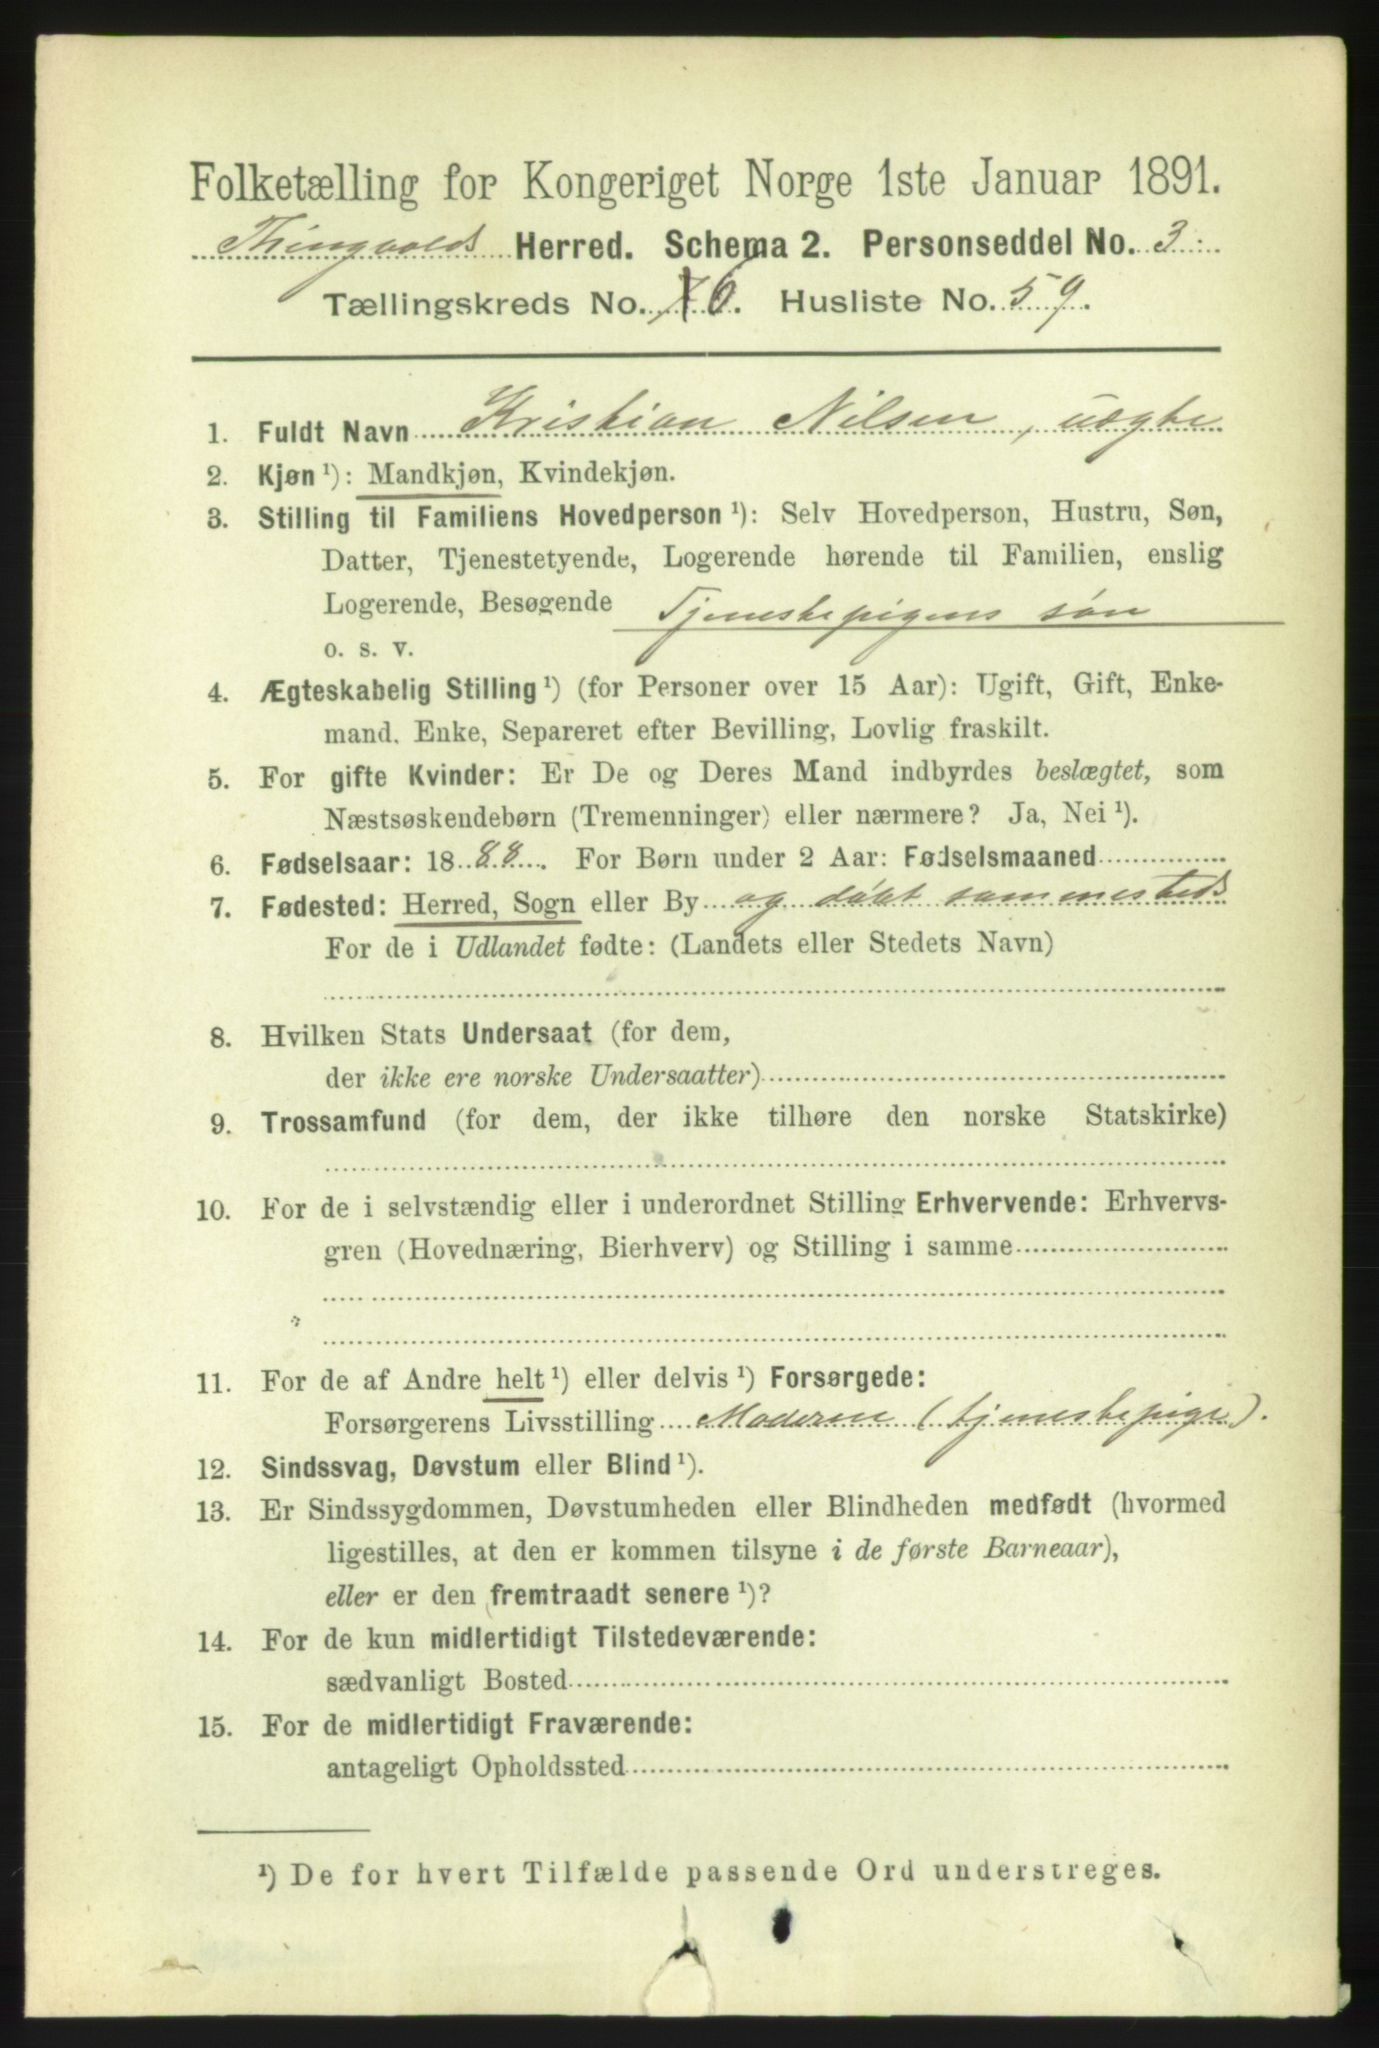 Folketælling for Kongeriget Norge 1ste Januar 1891.
Thingvolds Herred. Schema 2. Personseddel No. 3.
Tællingskreds No. 6. Husliste No. 59.
1. Fuldt Navn Kristian Nilsen, uægte
2. Kjøn ¹): Mandkjøn, Kvindekjøn.
3. Stilling til Familiens Hovedperson ¹): Selv Hovedperson, Hustru, Søn,
Datter, Tjenestetyende, Logerende hørende til Familien, enslig
Logerende, Besøgende Tjenestepigens søn
o. s. v.
4. Ægteskabelig Stilling ¹) (for Personer over 15 Aar): Ugift, Gift, Enke-
mand. Enke, Separeret efter Bevilling, Lovlig fraskilt.
5. For gifte Kvinder: Er De og Deres Mand indbyrdes beslægtet, som
Næstsøskendebørn (Tremenninger) eller nærmere? Ja, Nei ¹).
6. Fødselsaar: 1888. For Børn under 2 Aar: Fødselsmaaned
7. Fødested: Herred, Sogn eller By og døbt sammesteds
For de i Udlandet fødte: (Landets eller Stedets Navn)
8. Hvilken Stats Undersaat (for dem,
der ikke ere norske Undersaatter)
9. Trossamfund (for dem, der ikke tilhøre den norske Statskirke)
10. For de i selvstændig eller i underordnet Stilling Erhvervende: Erhvervs-
gren (Hovednæring, Bierhverv) og Stilling i samme
11. For de af Andre helt ¹) eller delvis ¹) Forsørgede:
Forsørgerens Livsstilling Moderen (tjenestepige).
12. Sindssvag, Døvstum eller Blind ¹).
13. Er Sindssygdommen, Døvstumheden eller Blindheden medfødt (hvormed
ligestilles, at den er kommen tilsyne i de første Barneaar),
eller er den fremtraadt senere ¹)?
14. For de kun midlertidigt Tilstedeværende:
sædvanligt Bosted
15. For de midlertidigt Fraværende:
antageligt Opholdssted
¹) De for hvert Tilfælde passende Ord understreges.